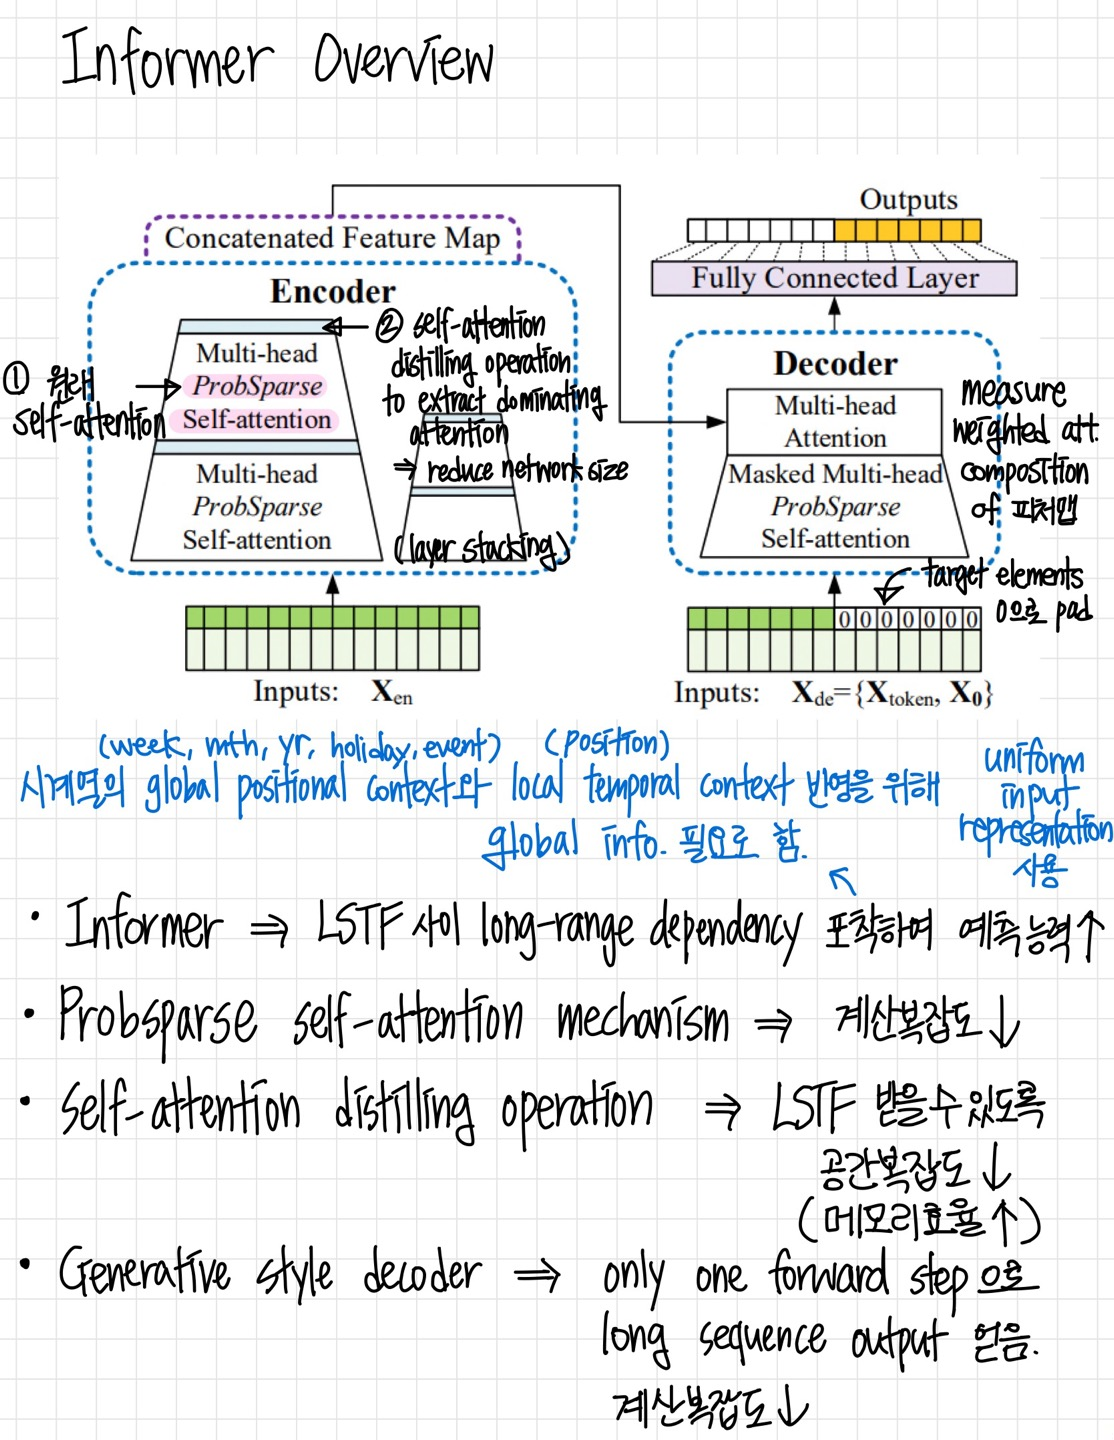 Informer Overview
Outputs
Concatenated Feature Map
Fully Connected Layer
Encoder
① 원래
self-attention
Multi-head
ProbSparse
Self-attention
Multi-head
ProbSparse
Self-attention
② self-attention
distilling operation
to extract dominating
attention
⇒ reduce network size
(layer stacking)
Decoder
Multi-head
Attention
Masked Multi-head
ProbSparse
Self-attention
measure
weighted att.
composition
of 피처맵
target elements
0으로 pad
0 0 0 0 0 0 0
Inputs: Xen
Inputs: Xde={Xtoken, X0}
(week, mth, yr, holiday, event) (position)
시계열의 global positional context와 local temporal context 반영을 위해
global info. 필요로 함.
uniform
input
representation
사용
• Informer ⇒ LSTF 사이 long-range dependency 포착하여 예측능력↑
• Probsparse self-attention mechanism ⇒ 계산복잡도↓
• Self-attention distilling operation ⇒ LSTF 받을 수 있도록
공간복잡도↓
(메모리효율↑)
• Generative style decoder ⇒ only one forward step으로
long sequence output 얻음.
계산복잡도↓